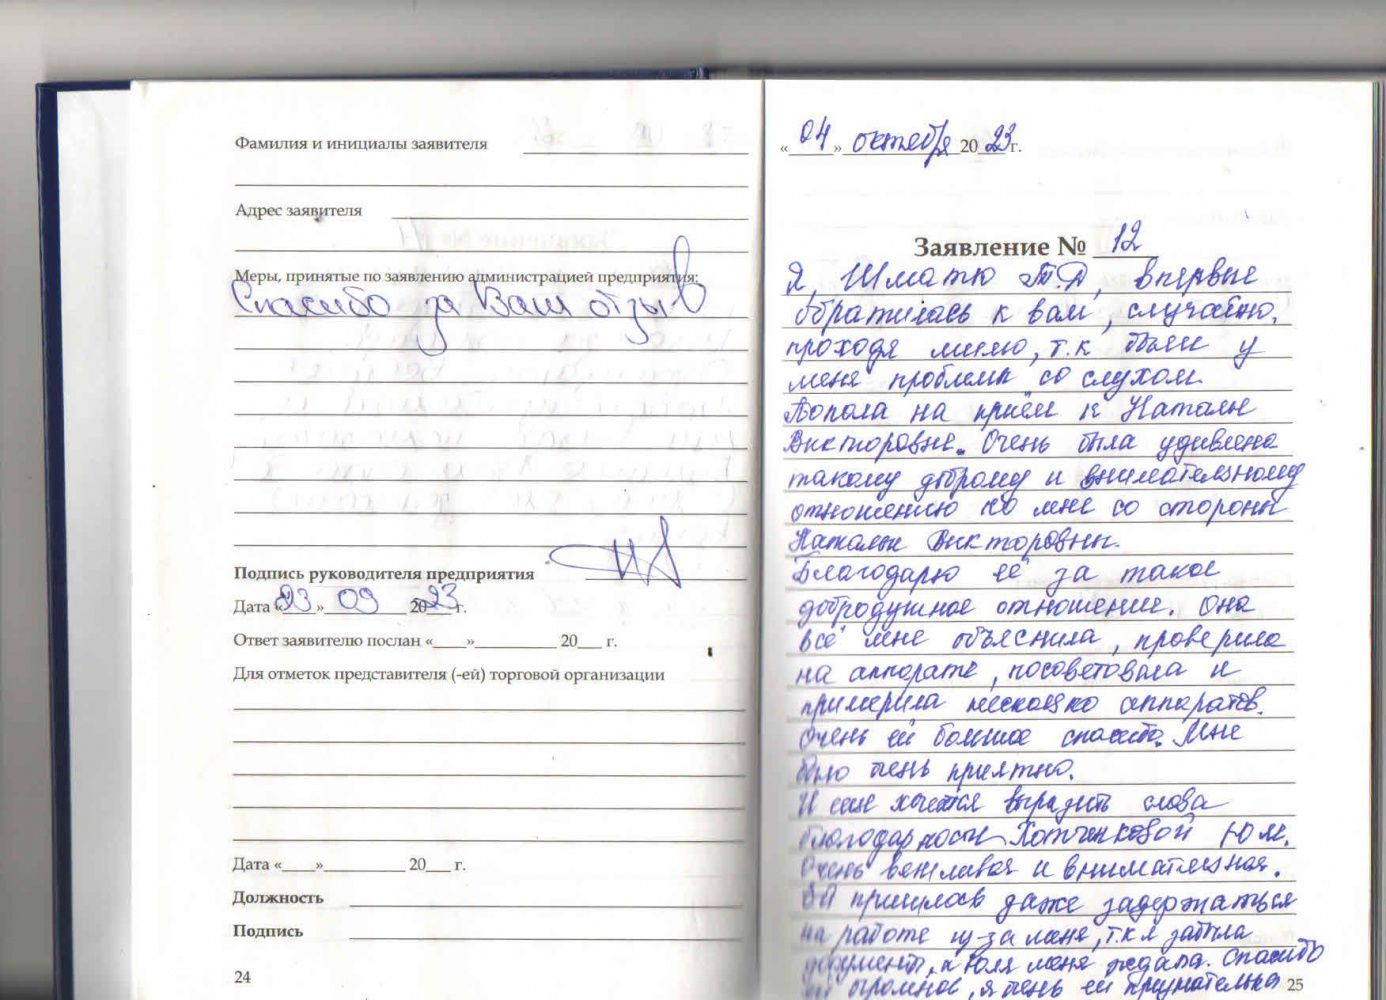 Фамилия и инициалы заявителя
Адрес заявителя
Меры, принятые по заявлению администрацией предприятия:
Спасибо за Ваш отзыв
Подпись руководителя предприятия
Дата «23» 09 2023 г.
Ответ заявителю послан «____»__________ 20___ г.
Для отметок представителя (-ей) торговой организации
Дата «____»__________ 20___ г.
Должность
Подпись
24
«04» октября 2023 г.
Заявление № 12
Я, Шматко Т.А, впервые
обратилась к вам, случайно,
проходя мимо, т.к были у
меня проблемы со слухом.
Попала на приём к Наталье
Викторовне. Очень была удивлена
такому доброму и внимательному
отношению ко мне со стороны
Натальи Викторовны.
Благодарю её за такое
добродушное отношение. Она
всё мне объяснила, проверила
на аппарате, посоветовала и
примерила несколько аппаратов.
Очень ей большое спасибо. Мне
было очень приятно.
И ещё хочется выразить слова
благодарности Хотченковой Ю.М.
Очень вежливая и внимательная.
Ей пришлось даже задержаться
на работе из-за меня, т.к я забыла
документы, а Юля меня ждала. Спасибо
ей огромное, я очень ей признательна
25